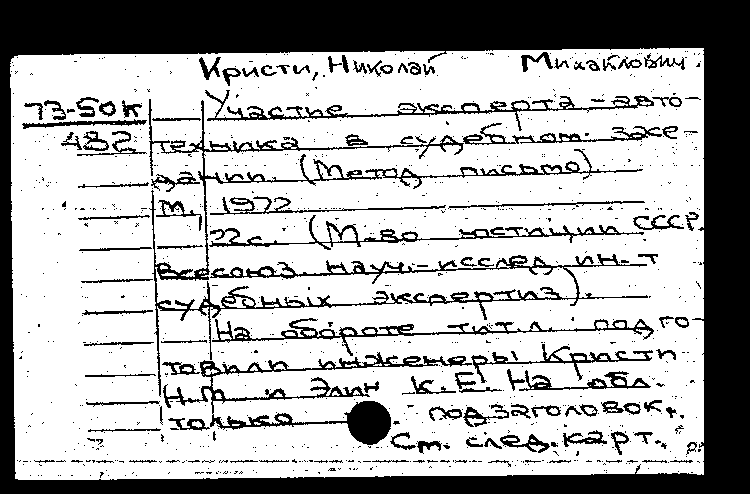 Кристи, Николай Михайлович.
73-50к Участие эксперта-авто-
482 техника в судебном засе-
дании. (Метод письмо)
М., 1972
22с. (М-во юстиции СССР.
Всесоюз. науч.-исслед. ин-т
судебных экспертиз).
На обороте тит.л. подго-
товили инженеры Кристи
Н.М и Элин К.Е. На обл.
только подзаголовок.
См. след. карт.